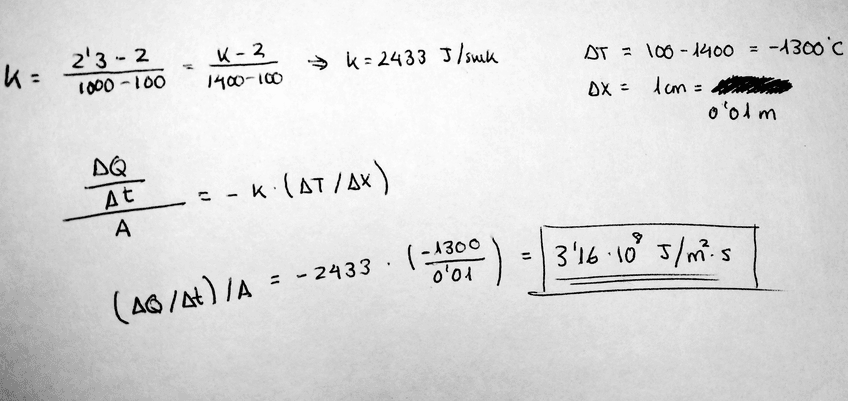 k = 2'3 - 2 / 1000 - 100 = k - 2 / 1400 - 100 ⇒ k = 2433 J/smk
ΔT = 100 - 1400 = -1300°C
Δx = 1 cm =
0'01 m
ΔQ / Δt / A = - k · (ΔT / Δx)
(ΔQ / Δt) / A = - 2433 · (-1300 / 0'01) = 3'16 · 10⁸ J/m² · s